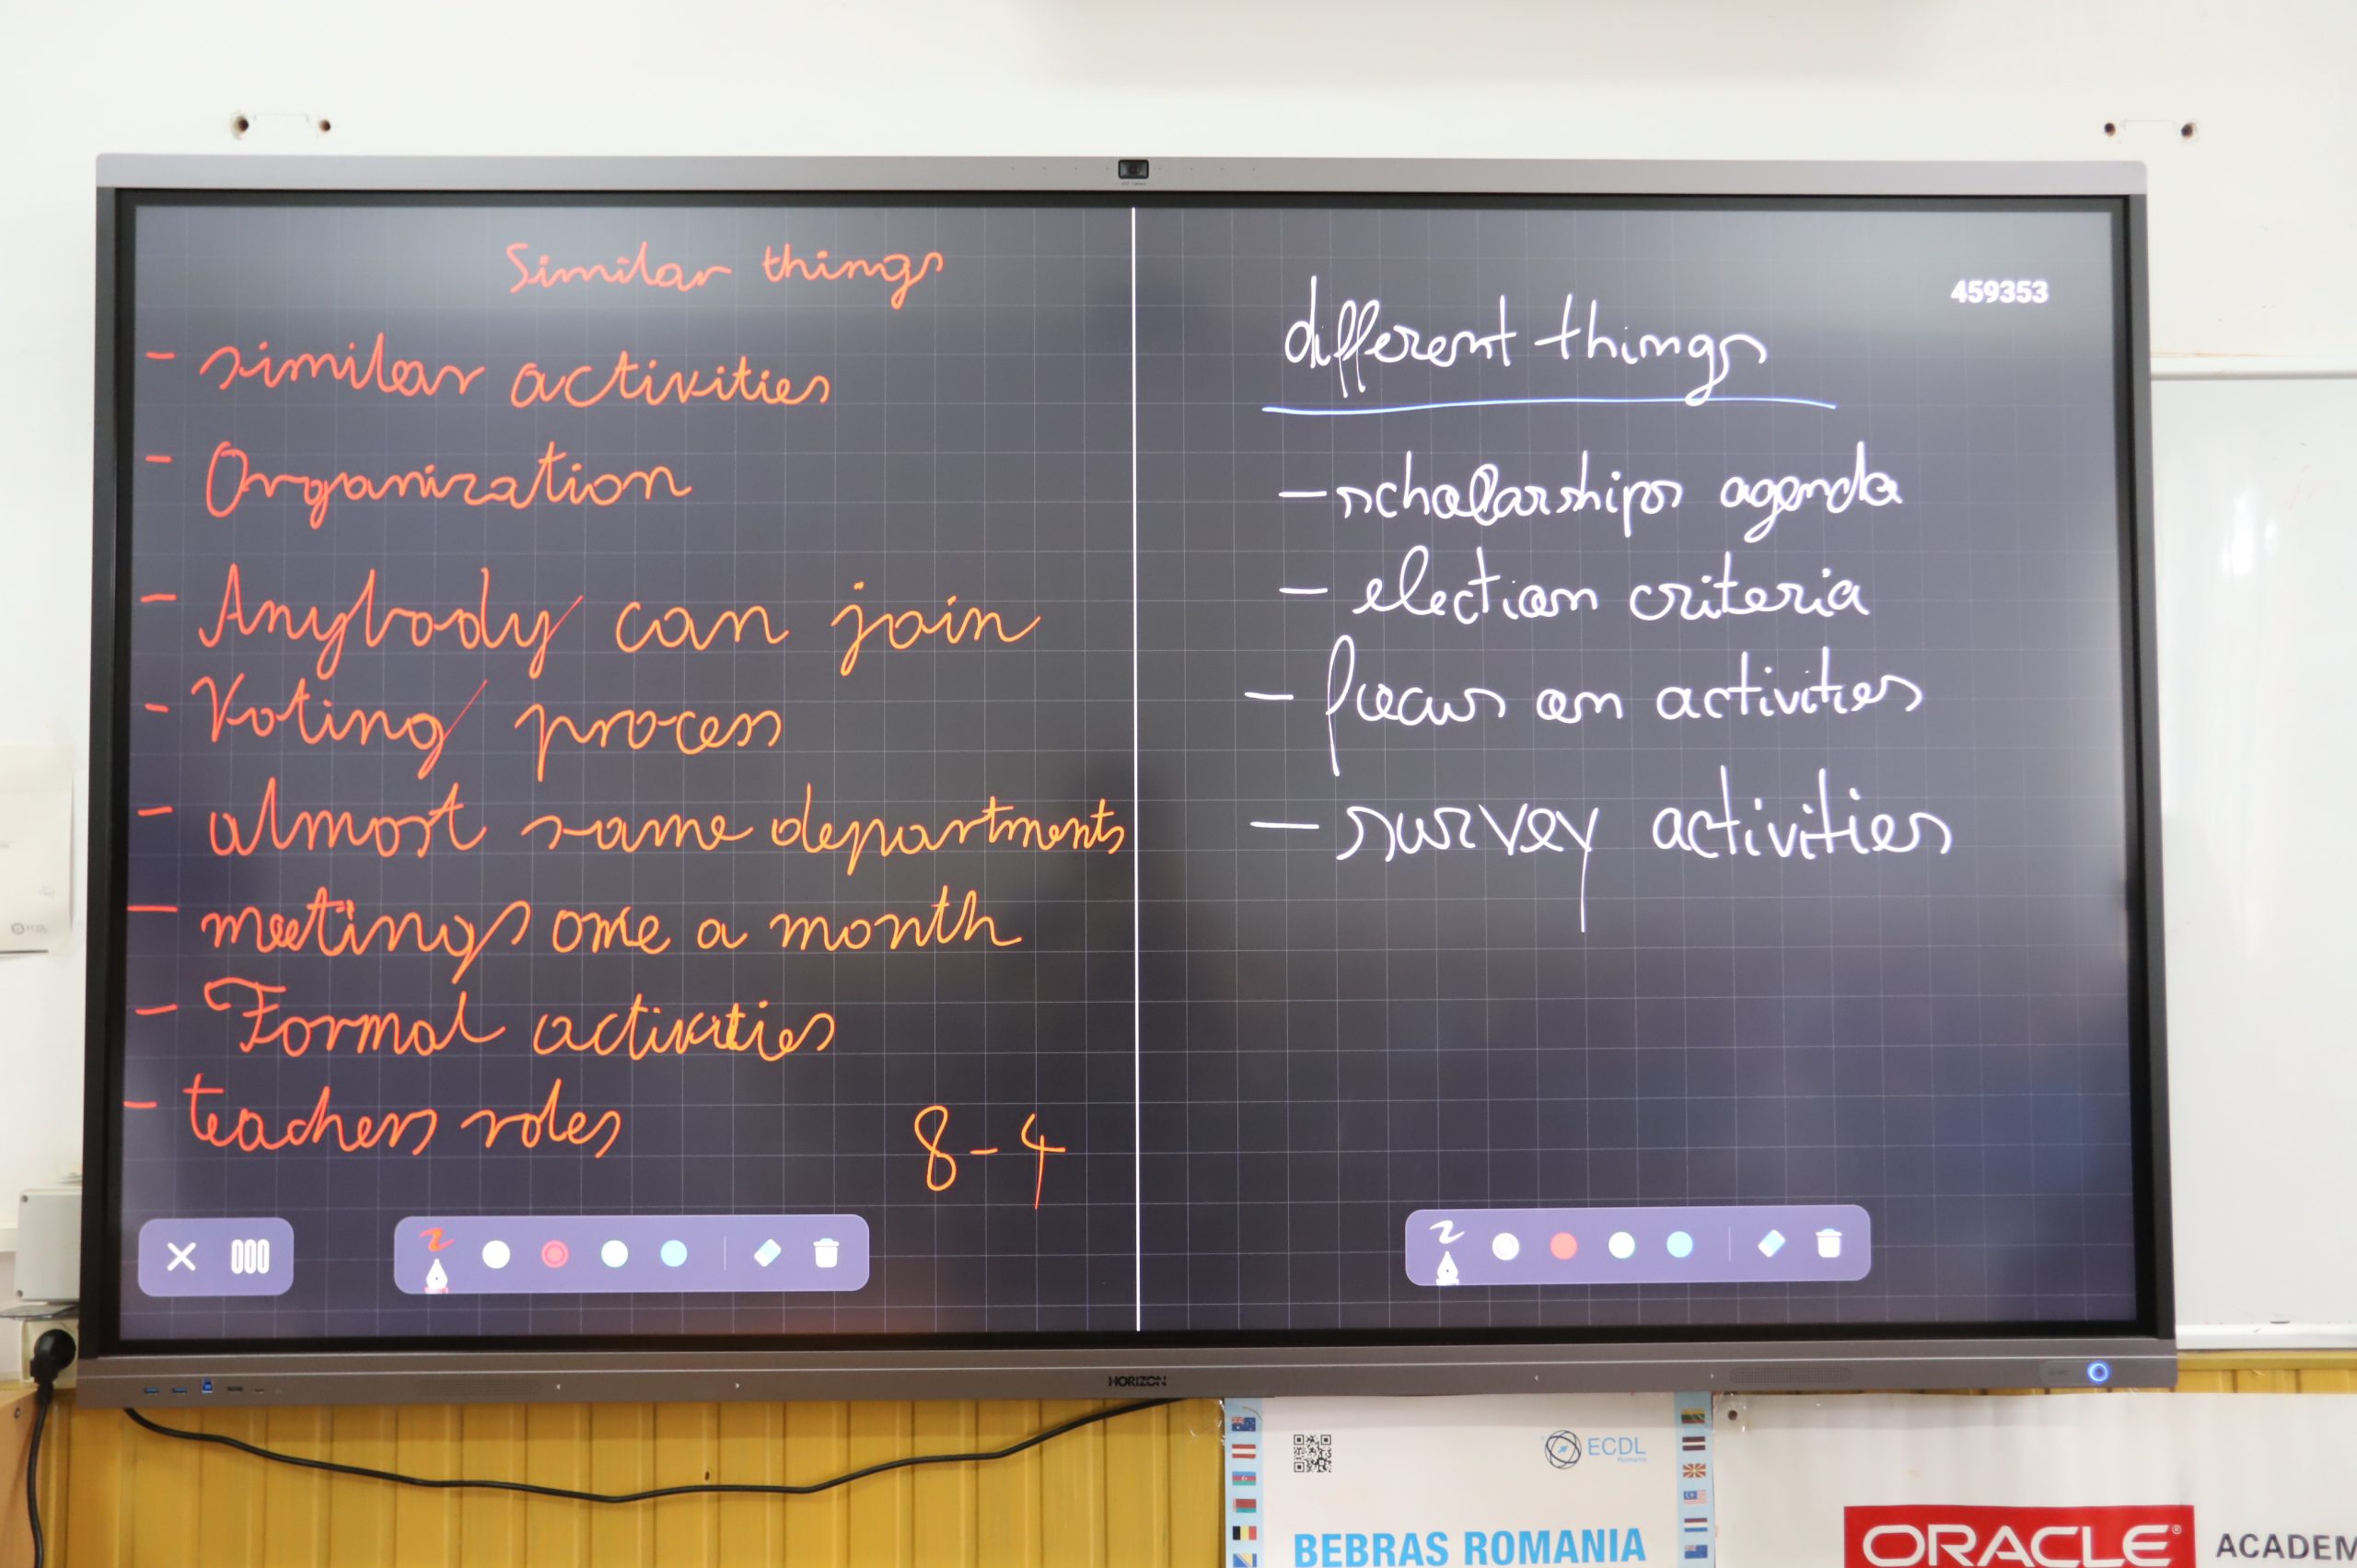 Similar things
- similar activities
- Organization
- Anybody can join
- Voting process
- almost same departments
- meetings one a month
- Formal activities
- teachers roles
8-4
459353
different things
- scholarships agenda
- election criteria
- focus on activities
- survey activities
HORIZON
ECDL
Romania
BEBRAS ROMANIA
ORACLE
ACADEM